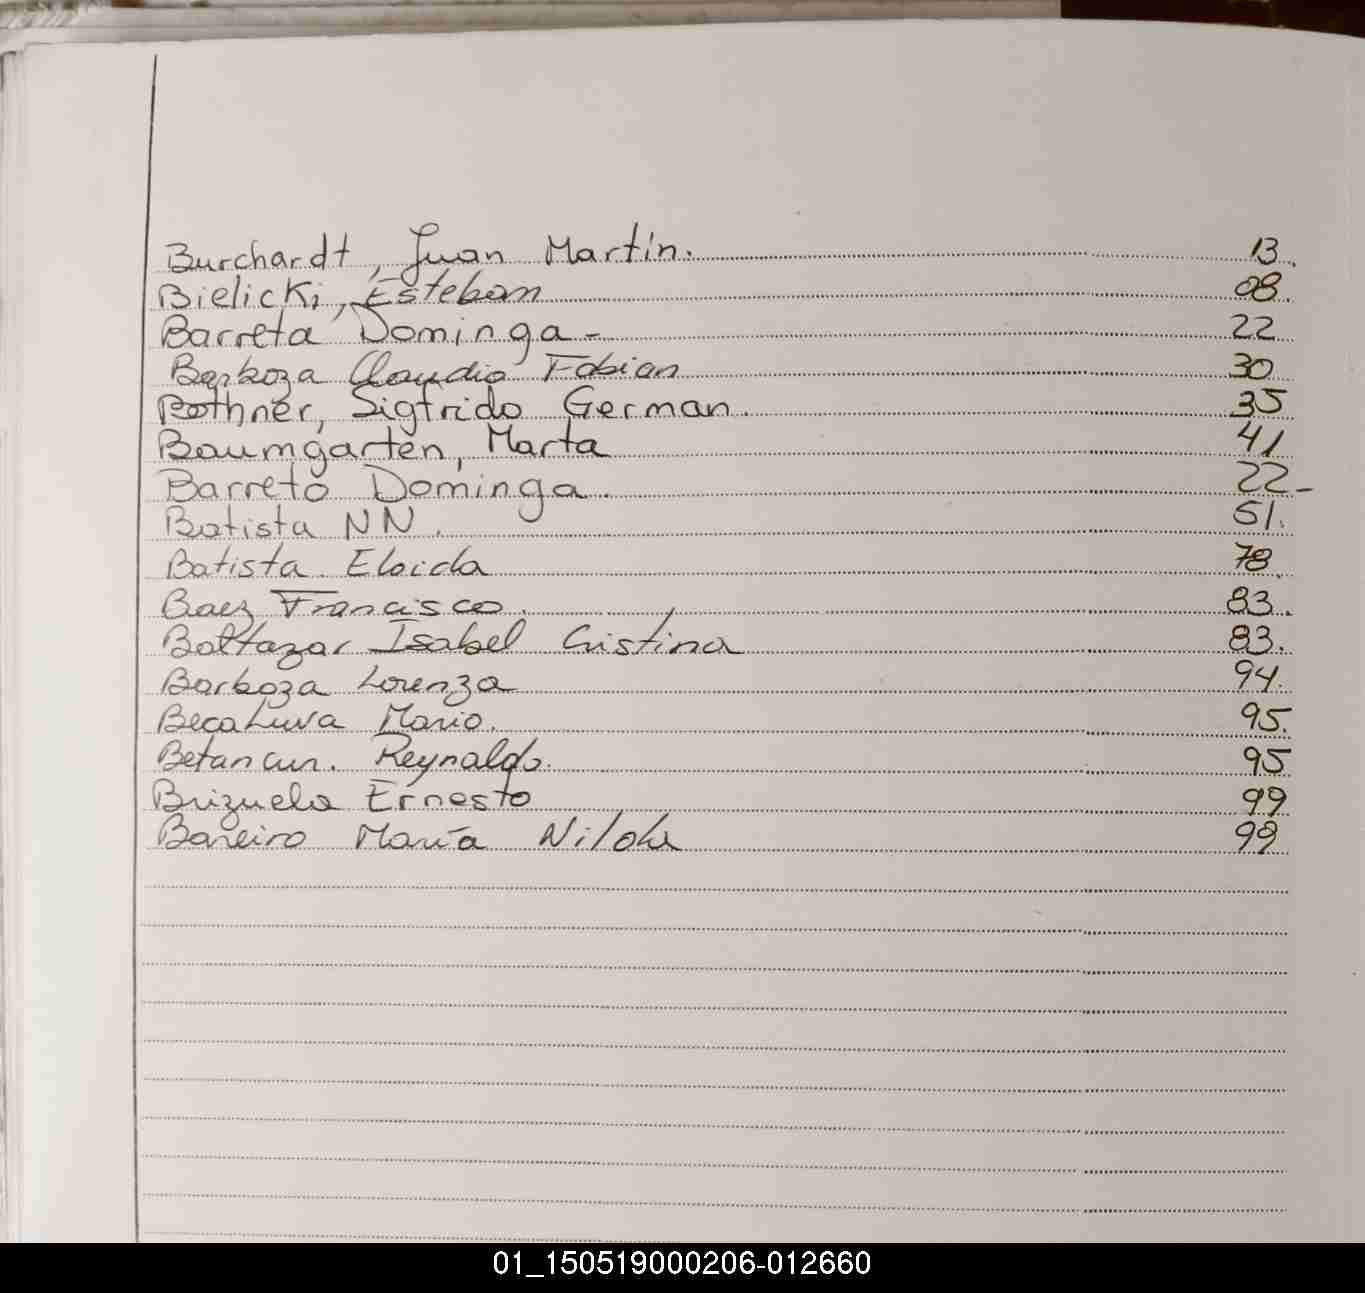 Burchardt, Juan Martin. 13.
Bielicki, Esteban 08.
Barreta Dominga - 22
Barboza Claudio Fabian 30
Bothner, Sigfrido German. 35
Baumgarten, Marta 41
Barreto Dominga. 22-
Batista NN. 51.
Batista. Eloida 78.
Baez Francisco. 83.
Baltazar Isabel Cristina 83.
Barboza Lorenza 94.
Mario. 95.
Betancur. Reynaldo. 95
Brizuela Ernesto 99
Bareiro María Nilda 99
01_150519000206-012660